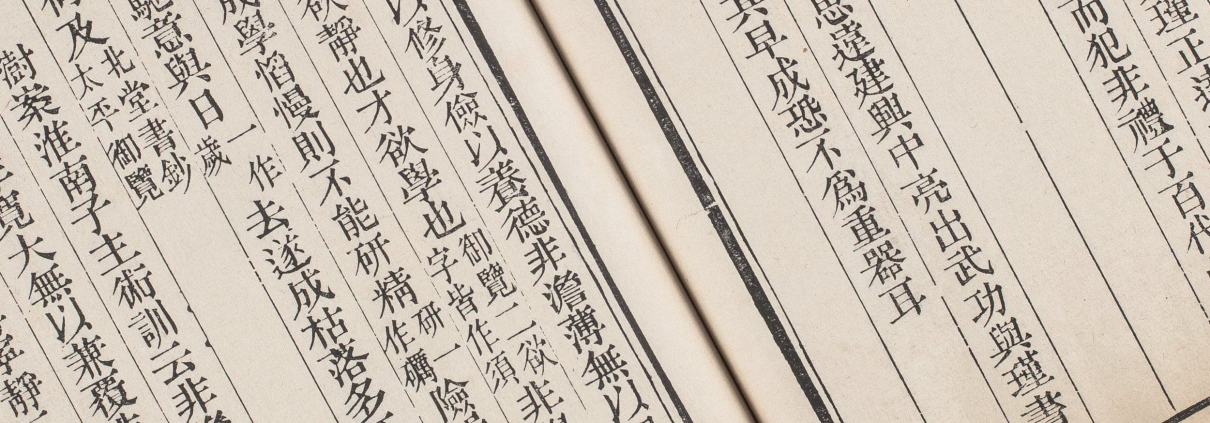 瑾正
而犯非禮于百代
思遠建興中亮出武功與瑾書
其早成恐不爲重器耳
以修身儉以養德非澹薄無以
欲靜也才欲學也御覽二欲字皆作須非
成學慆慢則不能研精研一作礪險
馳意與日一作歲去遂成枯落多
及北堂書鈔太平御覽
澍案淮南子主術訓云非
寬大無以兼覆
寧靜